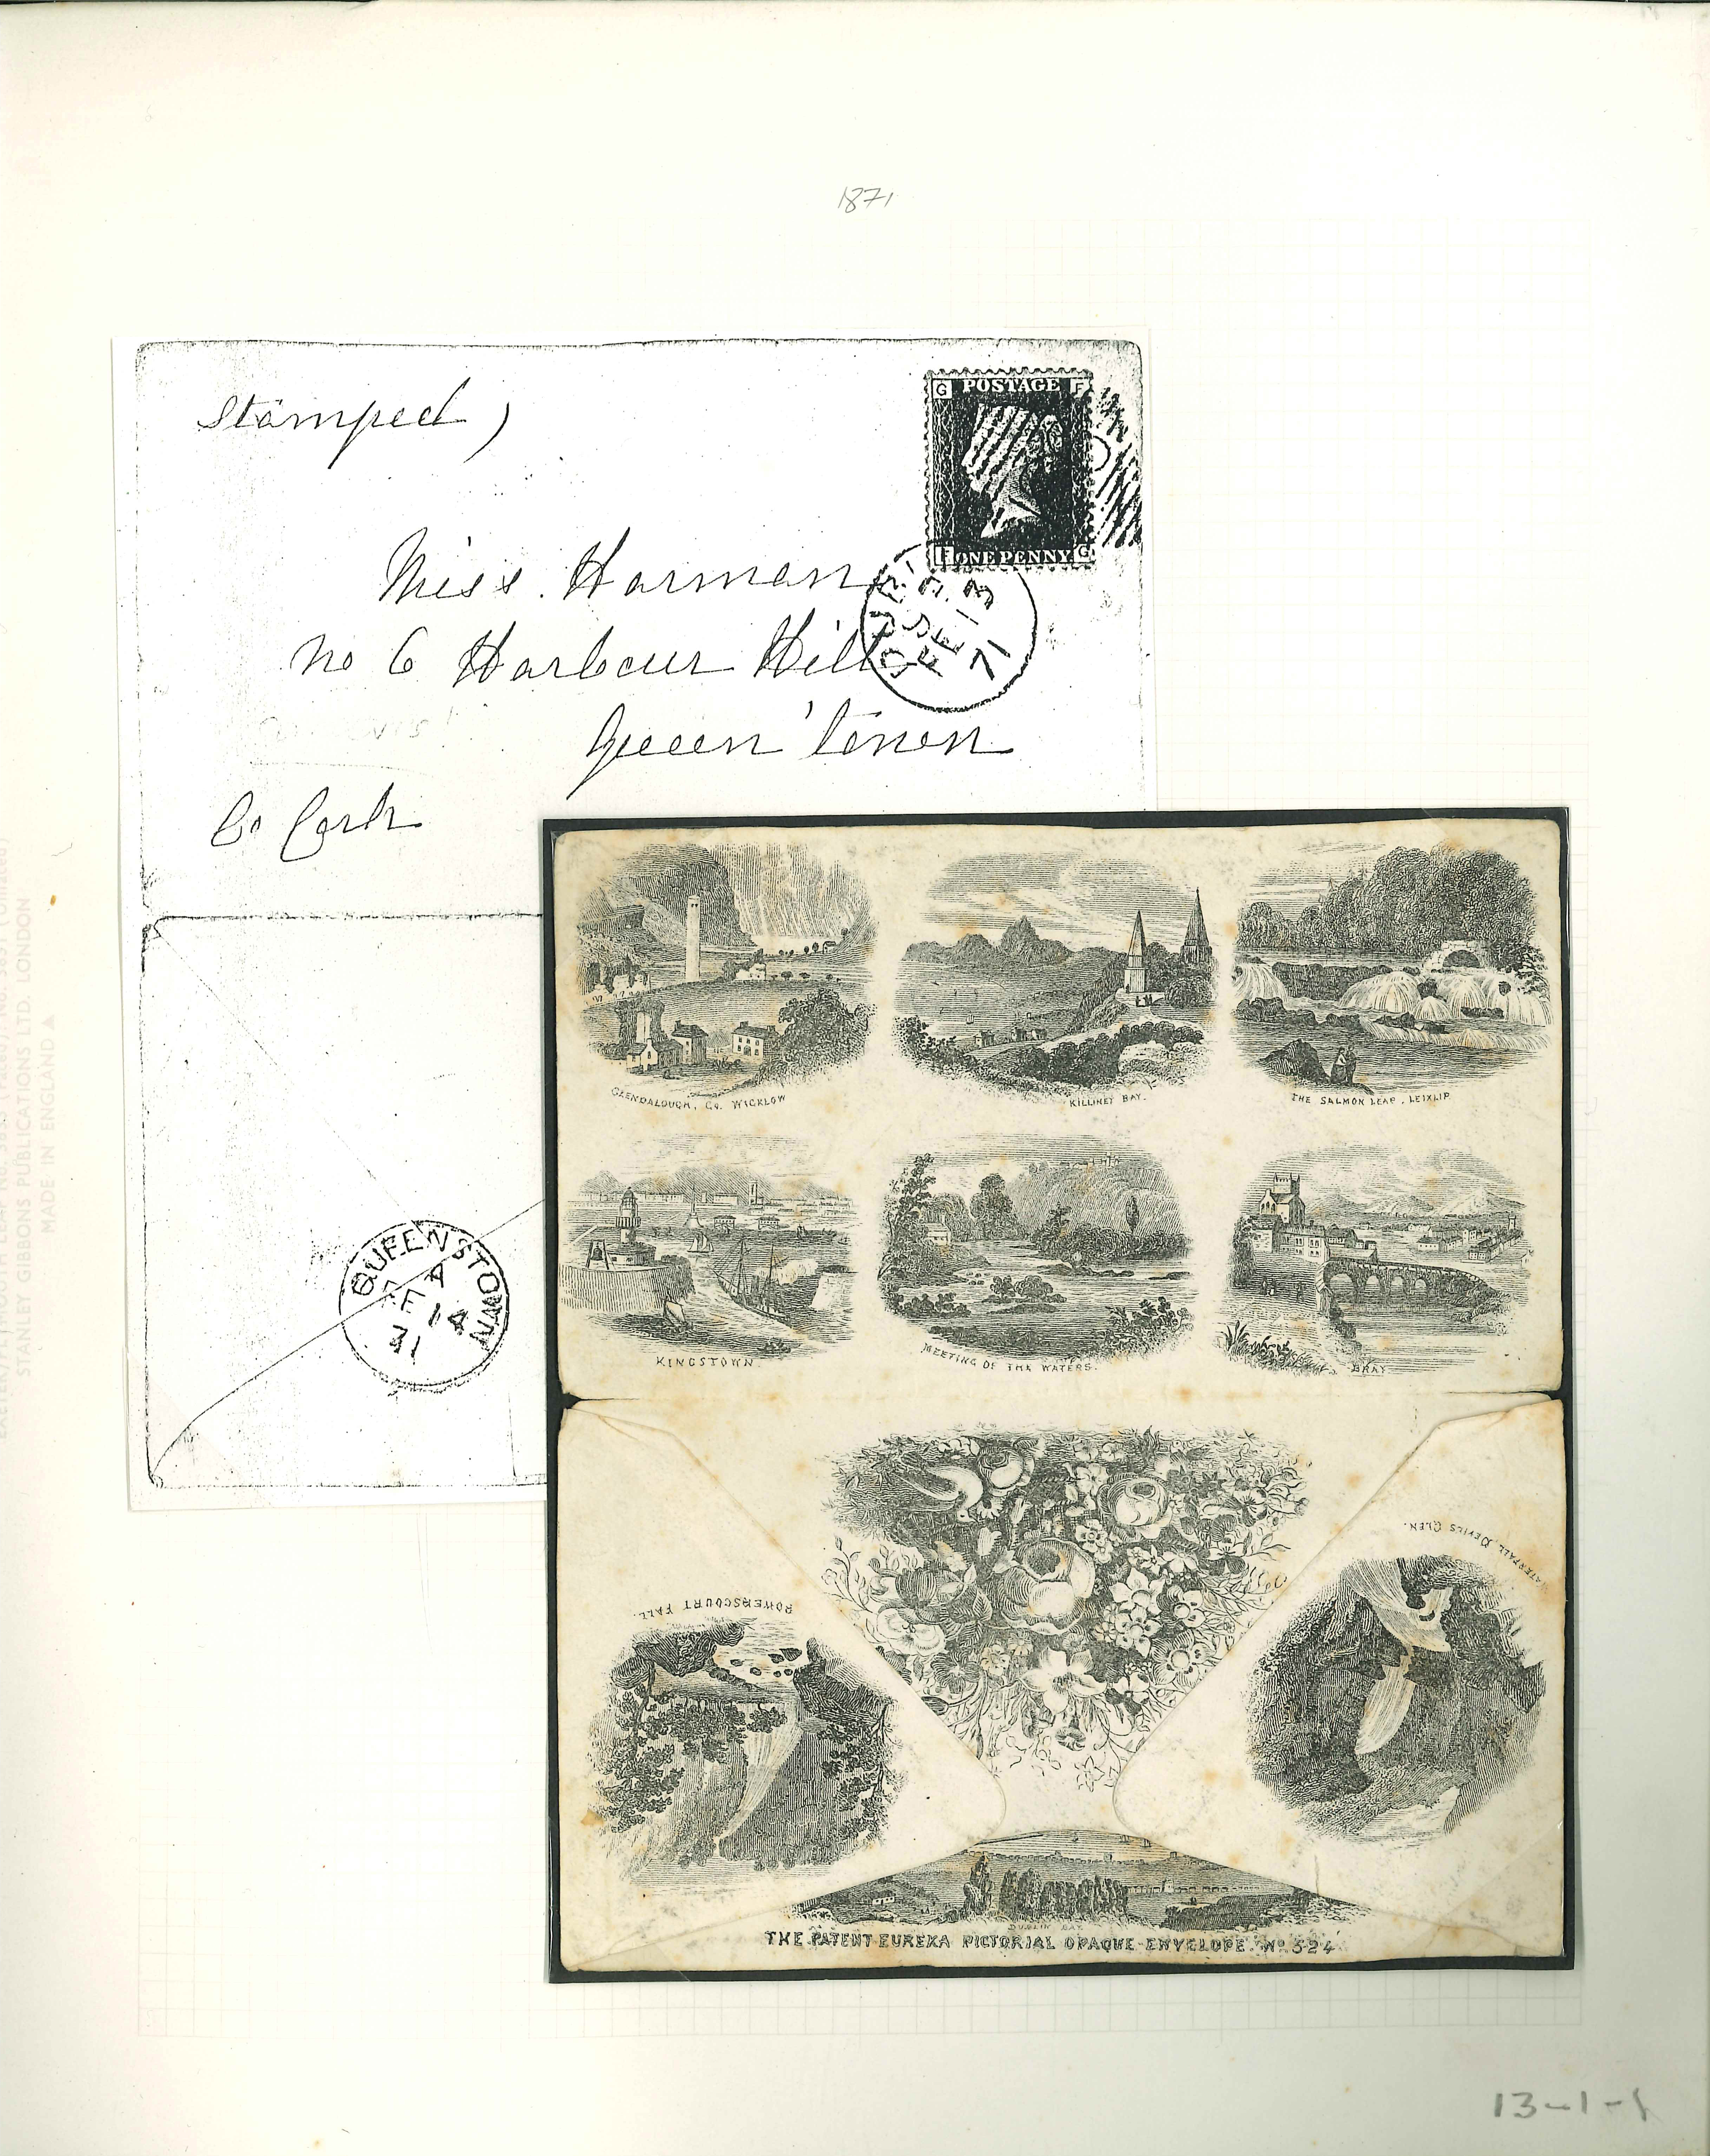 1871
Stamped,
G POSTAGE F
F ONE PENNY G
FE 13
71
Miss. Harman
No 6 Harbour Hill
Queen'town
Co Cork
QUEENSTOWN
A
FE 14
GLENDALOUGH, Co. WICKLOW
KILLINEY BAY.
THE SALMON LEAP, LEIXLIP
KINGSTOWN.
MEETING OF THE WATERS.
BRAY
POWERSCOURT FALL.
WATERFALL DEVILS GLEN.
DUBLIN BAY
THE PATENT EUREKA PICTORIAL OPAQUE ENVELOPE. No 524
STANLEY GIBBONS PUBLICATIONS LTD. LONDON
MADE IN ENGLAND
13-1-1